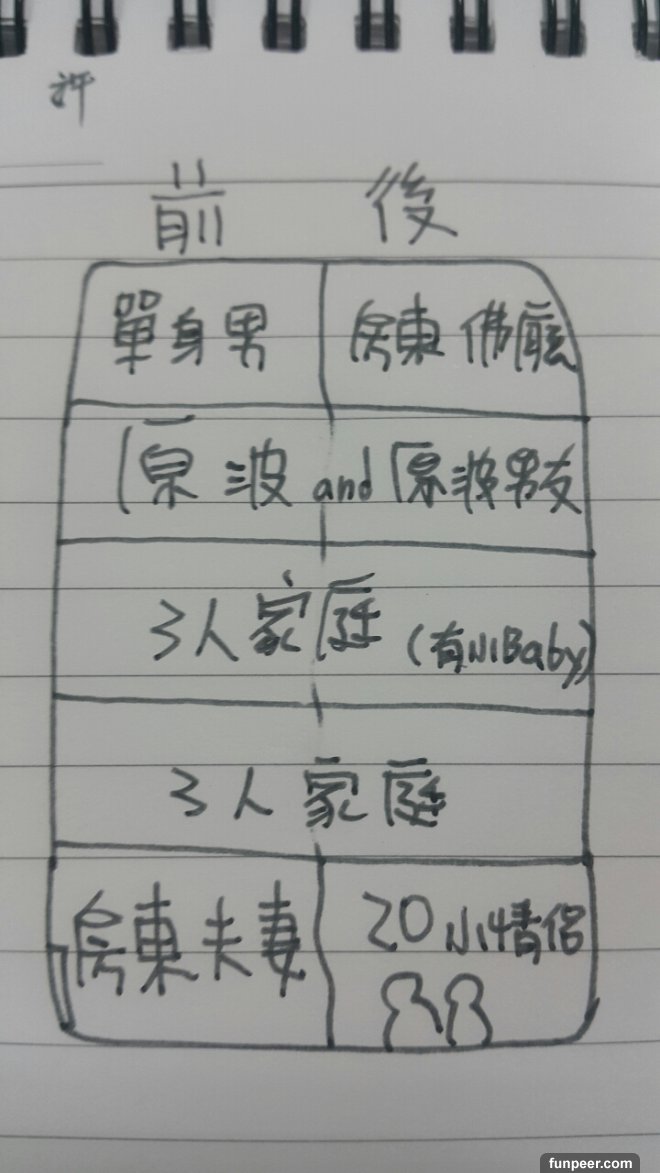 許
前 後
單身男 房東佛廳
原波 and 原波男友
3人家庭 (有小Baby)
3人家庭
房東夫妻 20小情侶
funpeer.com